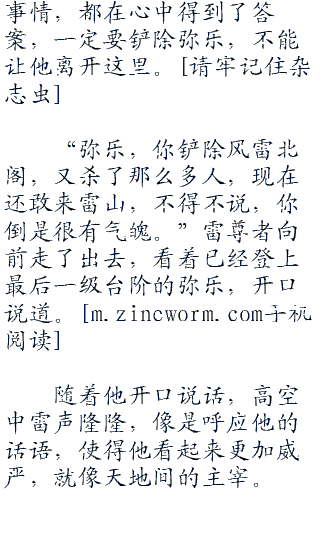 事情，都在心中得到了答
案，一定要铲除弥乐，不能
让他离开这里。[请牢记住杂
志虫]
“弥乐，你铲除风雷北
阁，又杀了那么多人，现在
还敢来雷山，不得不说，你
倒是很有气魄。”雷尊者向
前走了出去，看着已经登上
最后一级台阶的弥乐，开口
说道。[m.zincworm.com手机
阅读]
随着他开口说话，高空
中雷声隆隆，像是呼应他的
话语，使得他看起来更加威
严，就像天地间的主宰。